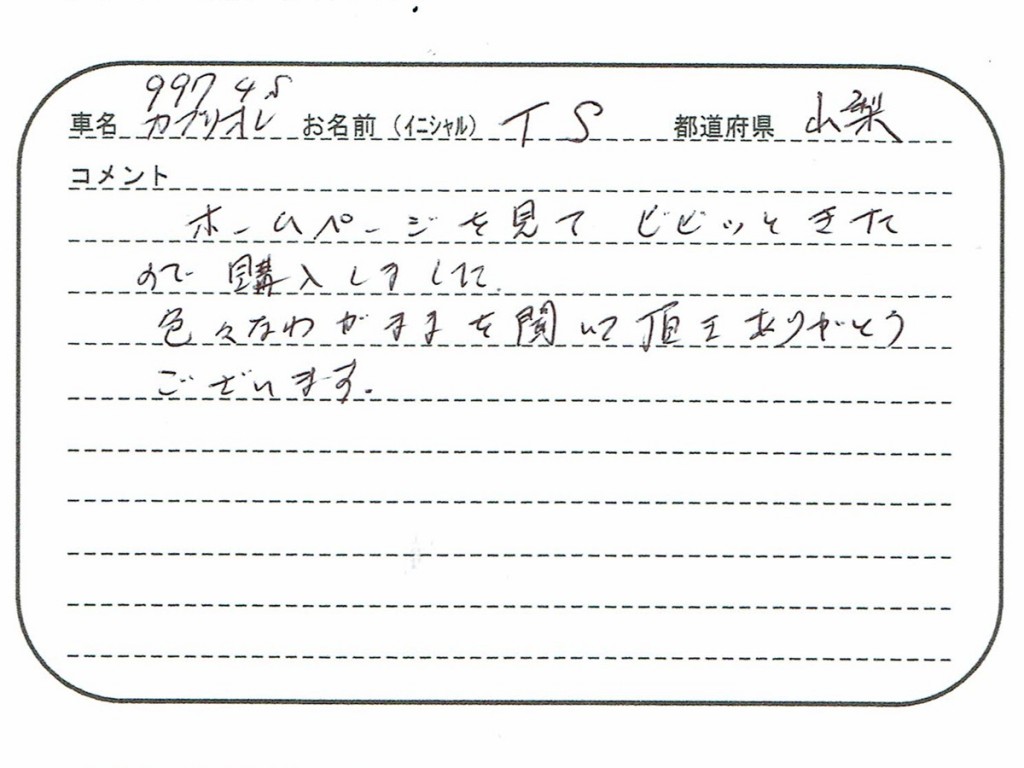 997 4S
車名 カブリオレ お名前 (イニシャル) T S 都道府県 山梨
コメント
ホームページを見て ビビッときた
ので 購入しました。
色々なわがままを聞いて頂きありがとう
ございます。